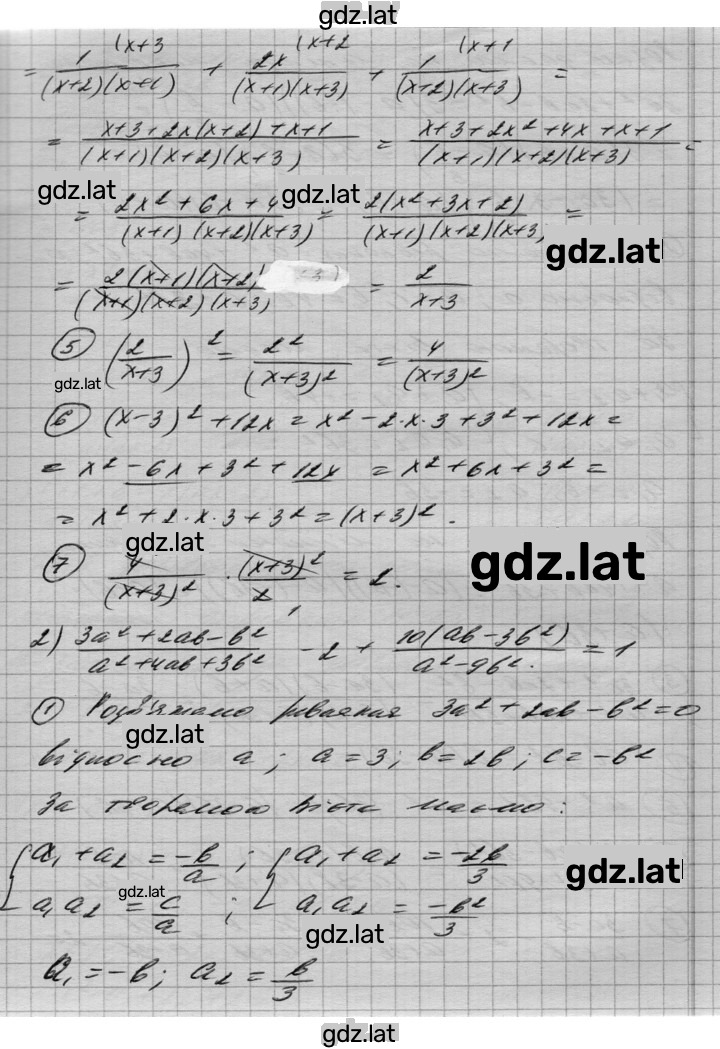 gdz.lat
= 1 (x+3 / (x+2)(x+1) + 2x (x+2 / (x+1)(x+3) + 1 (x+1 / (x+2)(x+3) =
= x+3+2x(x+2)+x+1 / (x+1)(x+2)(x+3) = x+3+2x²+4x+x+1 / (x+1)(x+2)(x+3) =
gdz.lat gdz.lat
= 2x²+6x+4 / (x+1)(x+2)(x+3) = 2(x²+3x+2) / (x+1)(x+2)(x+3) =
gdz.lat
= 2(x+1)(x+2) / (x+1)(x+2)(x+3) = 2 / x+3
⑤ (2 / x+3)² = 2² / (x+3)² = 4 / (x+3)²
gdz.lat
⑥ (x-3)²+12x = x²-2·x·3+3²+12x =
= x²-6x+3²+12x = x²+6x+3² =
= x²+2·x·3+3² = (x+3)².
gdz.lat
gdz.lat
⑦ 4 / (x+3)² · (x+3)² / 2 = 2.
2) 3a²+2ab-b² / a²+4ab+3b² - 2 + 10(ab-3b²) / a²-9b² = 1
① Розв'яжемо рівняння 3a²+2ab-b²=0
gdz.lat
відносно a; a=3; b=2b; c=-b²
За теоремою Вієта маємо:
{ a₁+a₂ = -b / a ; { a₁+a₂ = -2b / 3
gdz.lat
gdz.lat
a₁a₂ = c / a ; a₁a₂ = -b² / 3
gdz.lat
a₁=-b; a₂ = b / 3
gdz.lat